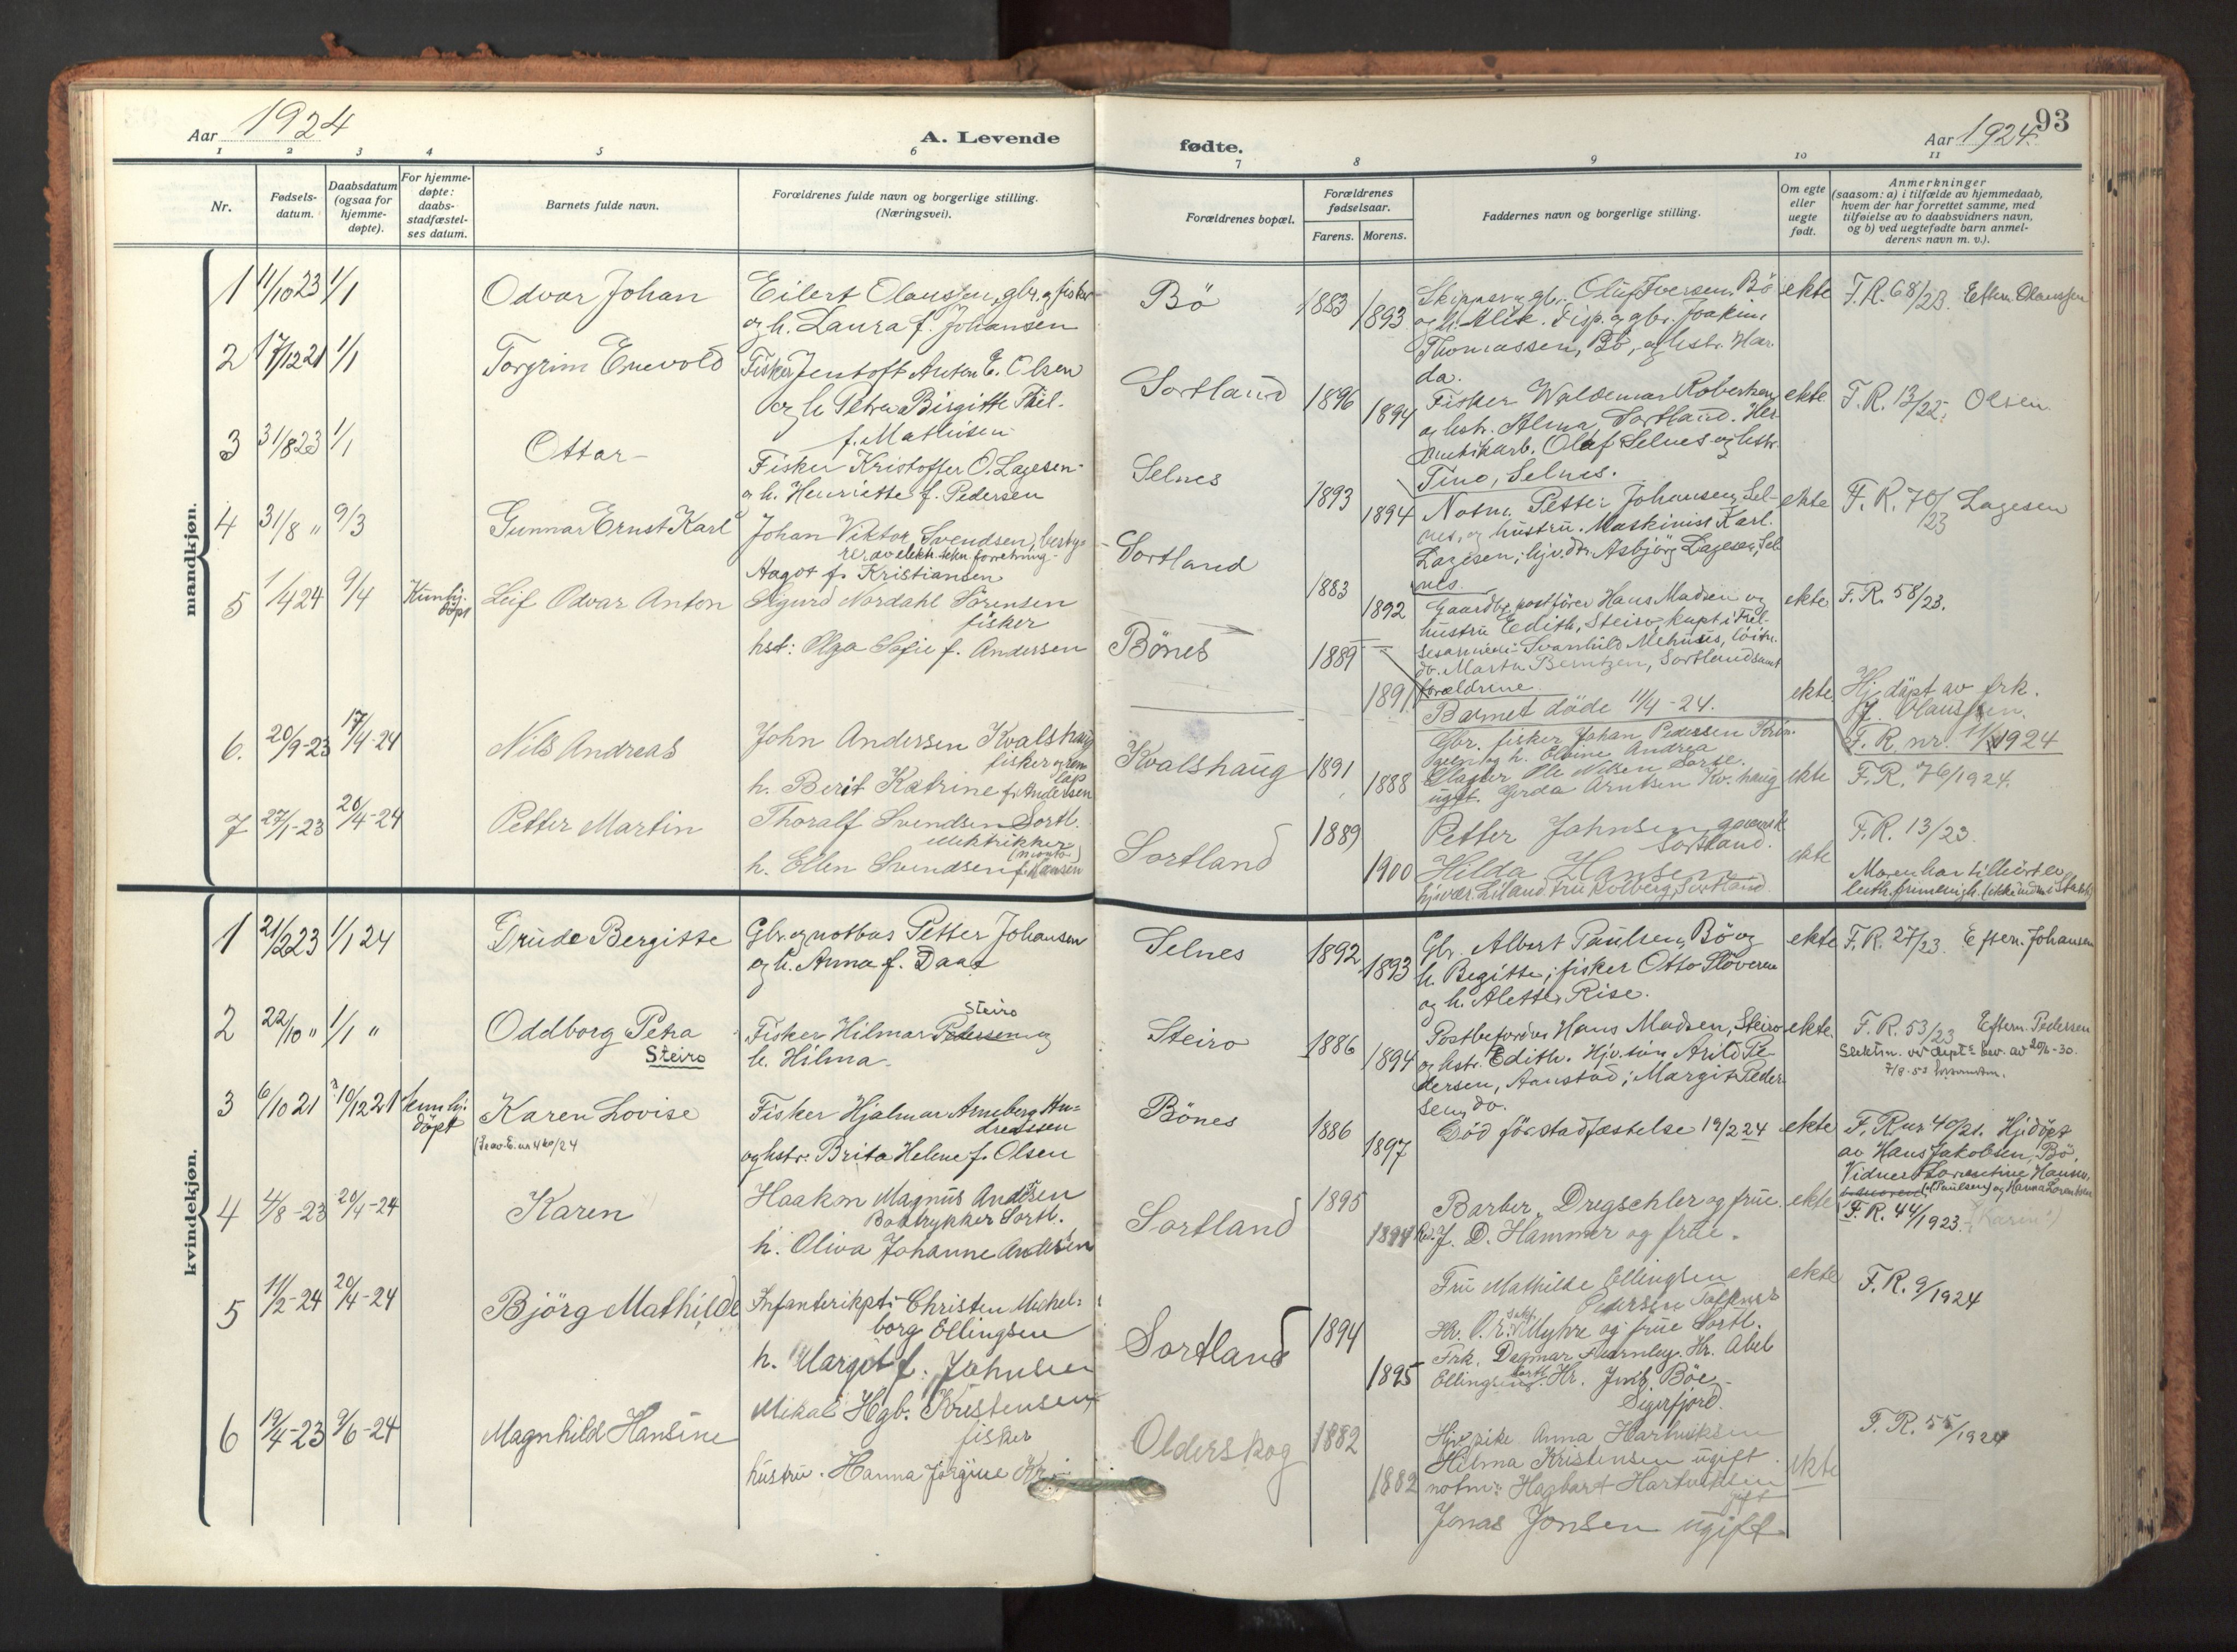 Aar 1924
A. Levende
fødte.
Aar 1924.
93
1 2 3 4 5 6 7 8 9 10 11
Nr.
Fødsels-
datum.
Daabsdatum
(ogsaa for
hjemme-
døpte).
For hjemme-
døpte:
daabs-
stadfæstel-
ses datum.
Barnets fulde navn.
Forældrenes fulde navn og borgerlige stilling.
(Næringsvei).
Forældrenes bopæl.
Forældrenes
fødselsaar.
Farens. Morens.
Faddernes navn og borgerlige stilling.
Om egte
eller
uegte
født.
Anmerkninger
(saasom: a) i tilfælde av hjemmedaab,
hvem der har forrettet samme, med
tilføielse av to daabsvidners navn,
og b) ved uegtefødte barn anmel-
derens navn m. v.).
mandkjøn.
1 11/10 23 1/1
Odvar Johan
Eilert Olaussen, gbr. og fisker
og h. Laura f. Johansen
Bö
1883 1893
Skipper og gbr. Oluf Iversen, Bö
Thomassen, Bö, og hstr. Har-
da.
ekte
F.R. 68/23. Eftern. Olaussen
2 17/12 21 1/1
Torgrim Enevold
Fisker Jentoft Anton E. Olsen
og h. Petra Birgitte
f. Mathisen
Sortland
1896 1894
Fisker Waldemar Robertsen
og hstr. Alma, Sortland.
Olaf Selnes og hstr.
Tino, Selnes.
ekte
F.R. 13/22, Olsen
3 31/8 23 1/1
Ottar
Fisker Kristoffer O. Lagesen
og h. Henriette f. Pedersen
Selnes
1893 1894
Notm. Petter Johansen, Sel-
nes, og hustru. Maskinist Karl
Lagesen; hjv. dr. Asbjörg Lagesen, Sel-
nes
ekte
F.R. 70/23 Lagesen
4 31/8 " 9/3
Gunnar Ernst Karl
Johan Viktor Svendsen, besty-
rer av elektr. tekn. forretning
Aagot f. Kristiansen
Sortland
1883 1892
Gaardbr. postförer Hans Madsen og
hustru Edith, Steiro, kapt. i Frel-
sesarmeen Svanhild Mehuus, löitn.
do. Marta Berntzen, Sortland samt
forældrene.
ekte
F.R. 58/23.
5 1/4 24 9/4 Kun hj.
döpt
Leif Odvar Anton
Sigurd Nordahl Sörensen
fisker
hst: Olga Sofie f. Andersen
Bönes
1889 1891
Barnet döde 11/4-24.
ekte
Hj. döpt av frk.
J. Olaussen.
F.R. nr. 11/1924
6. 20/9-23 17/4-24
Nils Andreas
John Andersen Kvalshaug
fisker og
h. Berit Katrine f. Andersen
Kvalshaug
1891 1888
Gbr. fisker Johan Pedersen
og h. Elvine Andrea
Ole Nilsen
ugift. Gerda Arntsen Kv.haug
ekte
F.R. 76/1924.
7 27/1-23 20/4-24
Petter Martin
Thoralf Svendsen Sortl.
elektrikker
h. Ellen Svendsen f. Hansen
Sortland
1889 1900
Petter Jahnsen
Sortland.
Hilda Hansen
fru Kolberg, Sortland
ekte
F.R. 13/23.
Moren har tilhört ev.
luth.
kvindekjøn.
1 21/2 23 1/1 24
Trude Bergitte
Gbr. og notbas Petter Johansen
og h. Anna f. Daae
Selnes
1892 1893
Gbr. Albert Paulsen, Bö og
h. Begitte; fisker Otto Stöveren
og h. Alette, Rise.
ekte
F.R. 27/23. Eftern. Johansen
2 22/10 " 1/1 "
Oddborg Petra
Steiro
Fisker Hilmar Pedersen og
Steiro
h. Hilma
Steiro
1886 1894
Postbeförder Hans Madsen, Steiro
og hstr. Edith. Hjv. sön Arild Pe-
dersen, Aanstad; Margit Peder-
sen, do.
ekte
F.R. 53/23 Eftern. Pedersen
Slektsn. ved dept's bev. av 20/6-30.
3 6/10 21 10/12 21 kun hj.
döpt
Karen Lovise
Fisker Hjalmar Arneberg An-
dreassen
og hstr. Brita Helene f. Olsen
Bönes
1886 1897
Död för stadfæstelse 19/2 24
ekte
F.R. nr 40/21. Hj. döpt
av Hans Jakobsen, Bö.
Vidner Lorentine Hansen,
(f. Paulsen) og Hanna Lorentsen
4 4/8-23 20/4-24
Karen
Haakon Magnus Andersen
Boktrykker Sortl.
h. Oliva Johanne Andersen
Sortland
1895
Barber Dregschler og frue.
J. D. Hammer og frue.
ekte
F.R. 44/1923. (Karin?)
5 11/2-24 20/4-24
Björg Mathilde
Infanterikpt. Christen Michel-
borg Ellingsen
h. Margot f. Jahnsen
Sortland
1894 1895
Fru Mathilde Ellingsen
Pedersen
Myhre og frue Sortl.
Frk. Dagmar Hr. Abel
Ellingsen. Hr. Jens Böe
Sigerfjord.
ekte
F.R. 9/1924
6 19/4-23 9/6-24
Magnhild Hansine
Mikal Hgb. Kristensen
fisker
hustru. Hanna Jörgine Kr.
Olderskog
1882 1882
Hjv. pike Anna Hartviksen
Hilma Kristensen ugift.
notm: Hagbart Hartviksen
gift
Jonas Jonsen ugift
ekte
F.R. 55/1924